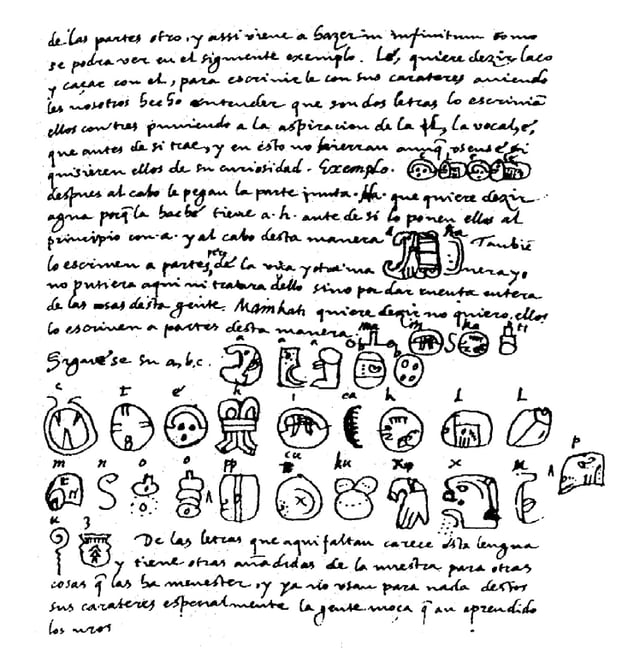 de las partes otro, y assi viene a hazer in infinitum como
se podra ver en el siguiente exemplo. Lé, quiere dezir laço
y caçar con el, para escrivirle con sus carateres aviendo
les nosotros hecho entender que son dos letras lo escrivian
ellos con tres puniendo a la aspiracion de la l, la vocal, é,
que antes de si trae, y en esto no hierran aunq̃ usensé si
quisieren ellos de su curiosidad. Exemplo. e l e lé
despues al cabo le pegan la parte junta. Ha. que quiere dezir
agua porq̃ la haché tiene a. h. ante de si lo ponen ellos al
principio con a. y al cabo desta manera a ha Tambiẽ
lo escriven a partes, pero de la una y otra ma nera yo
no pusiera aqui ni tratara dello sino por dar cuenta entera
de las cosas desta gente. Mainkati quiere dezir no quiero. ellos
lo escriven a partes desta manera. ma i n ka ti
Siguese su a, b, c. a a a b b
c t é h i ca k l l
m n o o pp cu ku x x u p
u z De las letras que aqui faltan carece esta lengua
y tiene otras añadidas de la nuestra para otras
cosas q̃ las ha menester, y ya no usan para nada destos
sus carateres especialmente la gente moça q̃ an aprendido
los nros